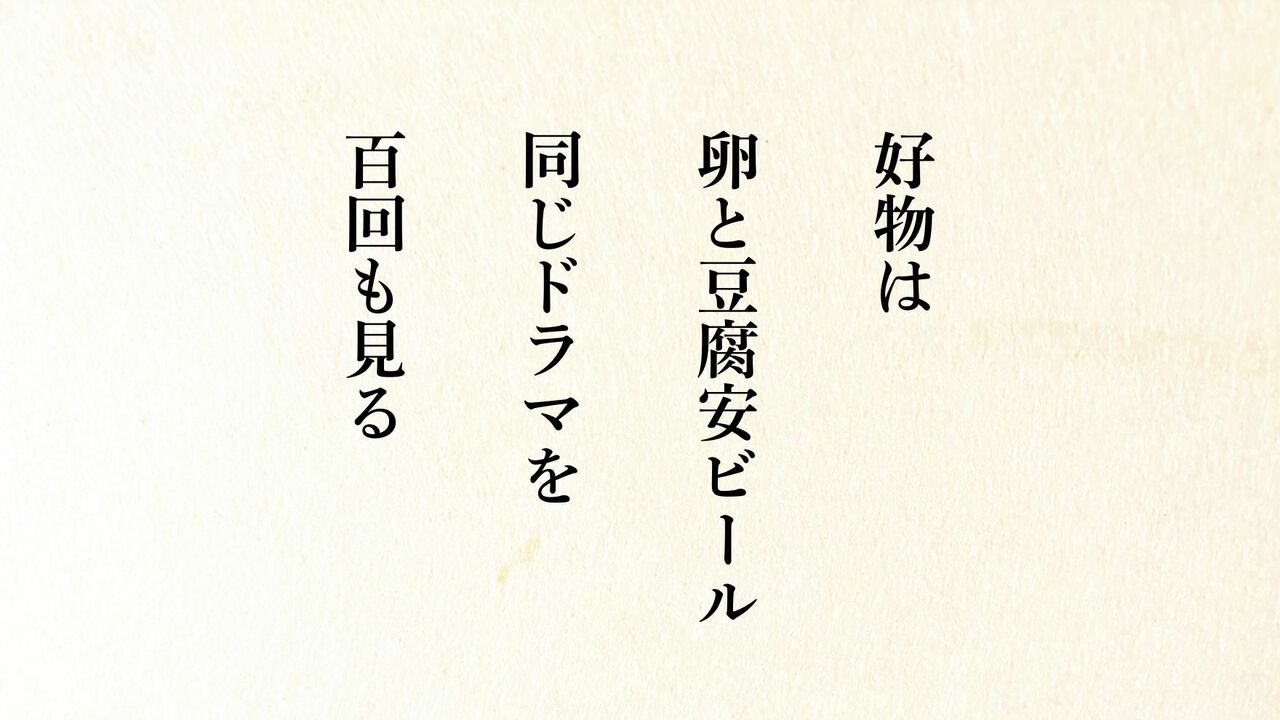 好物は
卵と豆腐安ビール
同じドラマを
百回も見る